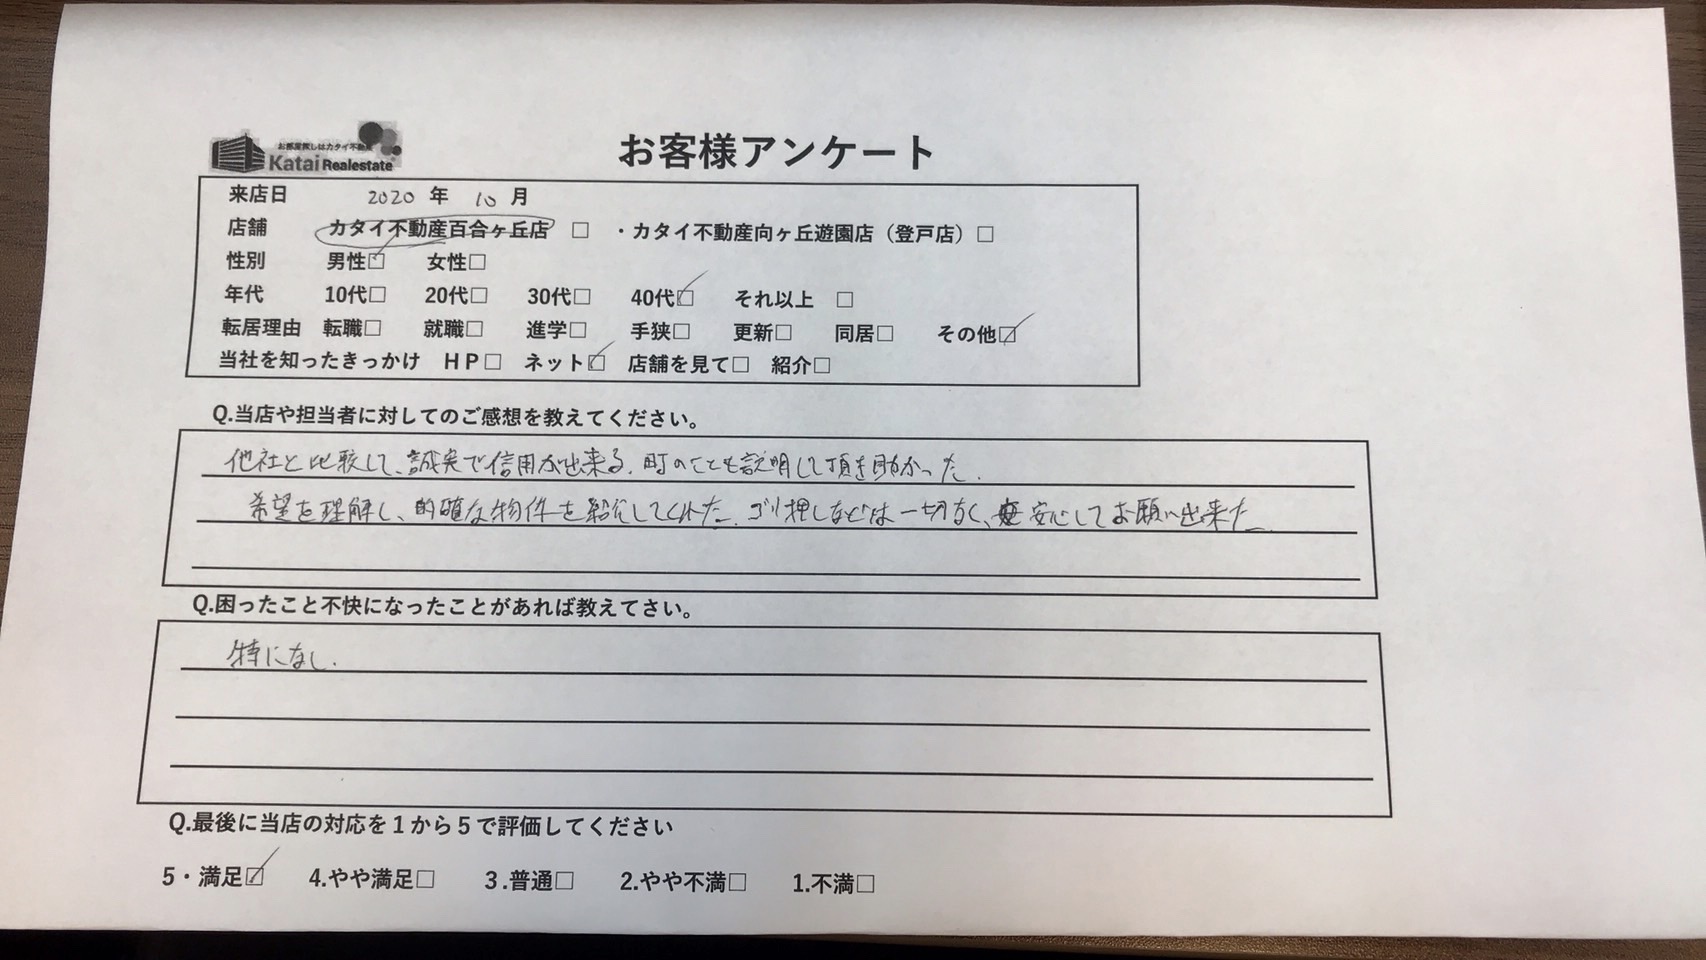 お部屋探しはカタイ不動産
Katai Realestate
お客様アンケート
来店日 2020 年 10 月
店舗 カタイ不動産百合ヶ丘店 □ ・カタイ不動産向ヶ丘遊園店（登戸店）□
性別 男性☑ 女性□
年代 10代□ 20代□ 30代□ 40代☑ それ以上 □
転居理由 転職□ 就職□ 進学□ 手狭□ 更新□ 同居□ その他☑
当社を知ったきっかけ ＨＰ□ ネット☑ 店舗を見て□ 紹介□
Q.当店や担当者に対してのご感想を教えてください。
他社と比較して、誠実で信用が出来る。町のことも説明して頂き助かった。
希望を理解し、的確な物件を紹介してくれた。ゴリ押しなどは一切なく、安心してお願い出来た。
Q.困ったこと不快になったことがあれば教えてさい。
特になし。
Q.最後に当店の対応を１から５で評価してください
5・満足☑ 4.やや満足□ 3.普通□ 2.やや不満□ 1.不満□